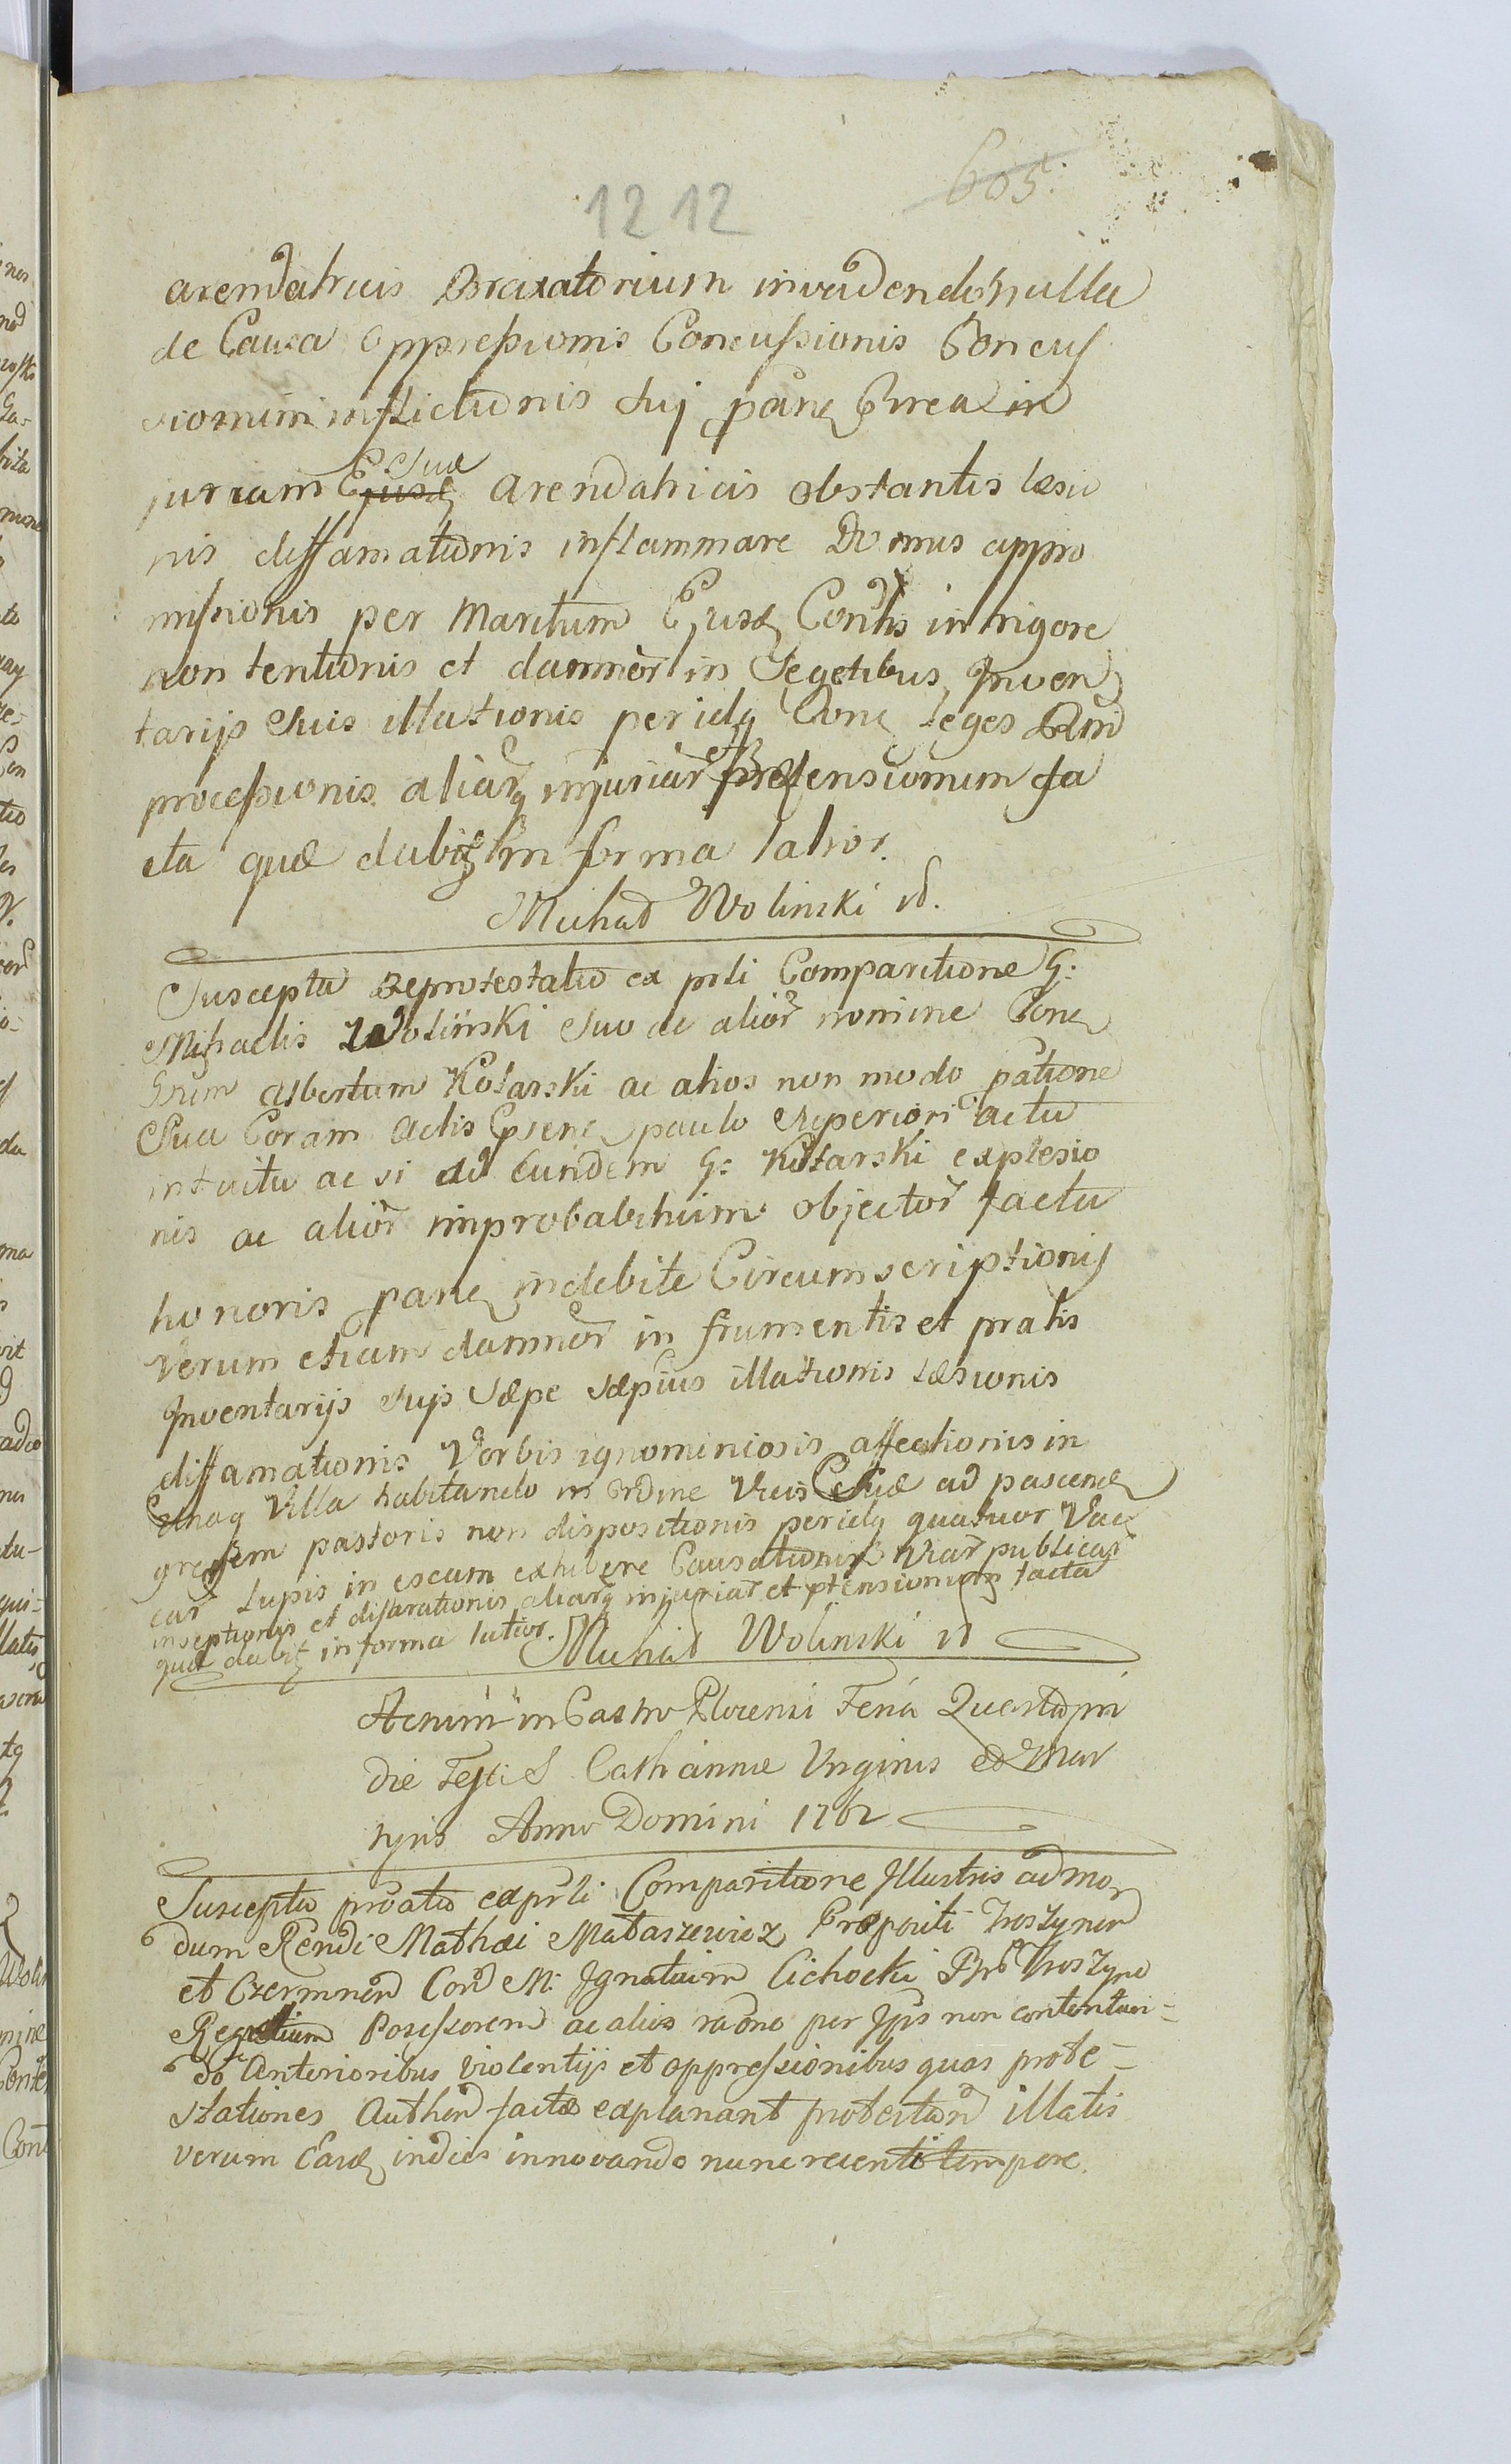 605.
1212
arendatricis Braxatorium invadendo nulla
de Causa oppressionis Concussionis Concus
sionum inflictionis suj panẽ Circa in
juriam Ejusd Suæ arendatricis obstantis læsio
nis diffamationis inflammare Domus appro
missionis per Maritum Ejusd Conthis in rigore
non tentionis et damnor in Segetibus Inven
tarijs Suis illationis peridq Cone leges Rni
processionis aliarq injuriar et prætensionum fa
cta quæ dabitr in forma latior.
Michał Wolinski id.
Suscepta Reprotestatio ex prli Comparitione G:
Mihaelis Wolinski Suo ac alior nomine Cone
Grum Albertum Kotarski ac alios non modo patione
Sua Coram Actis Epsene paulo Superiori actu
intuitu ac si ad Eundem G: Kotarski explesio
nis ac alior improbabilium objector facta
honoris pane indebite Circumscriptionis
Verum etiam damnor in frumentis et pratis
Inventarijs sujs Sæpe sæpius illationis læsionis
diffamationis Verbis ignominiosis affectionis in
Villa habitando in ordine Vicis Suæ ad pascend
gregem pastoris non dispositionis peridq quatuor Vac
car Lupis in escam exhibere Causationis Viar publicar
inseptionis et disfarationis aliarq injuriar et ptensionum facta
quæ dabitr in forma latior. Michał Wolinski id
Actum in Castro Plocensi Feria Quarta pri
die Festi S Catharinnæ Virginis et Mar
tyris Anno Domini 1762
Suscepta proatio ex prli Comparitione Illustris admo
dum Rendi Mathæi Mataszewicz Præpositi Troszynen
et Czermnen Con M. Ignatium Cichocki Troszyno
Regotium Possessorem ac alios raone per Ips non contentan=
do anterioribus violentijs et oppressionibus quas prote=
stationes Authen factæ explanant protestan illatis
verum Easd indies innovando nunc recenti tempore.